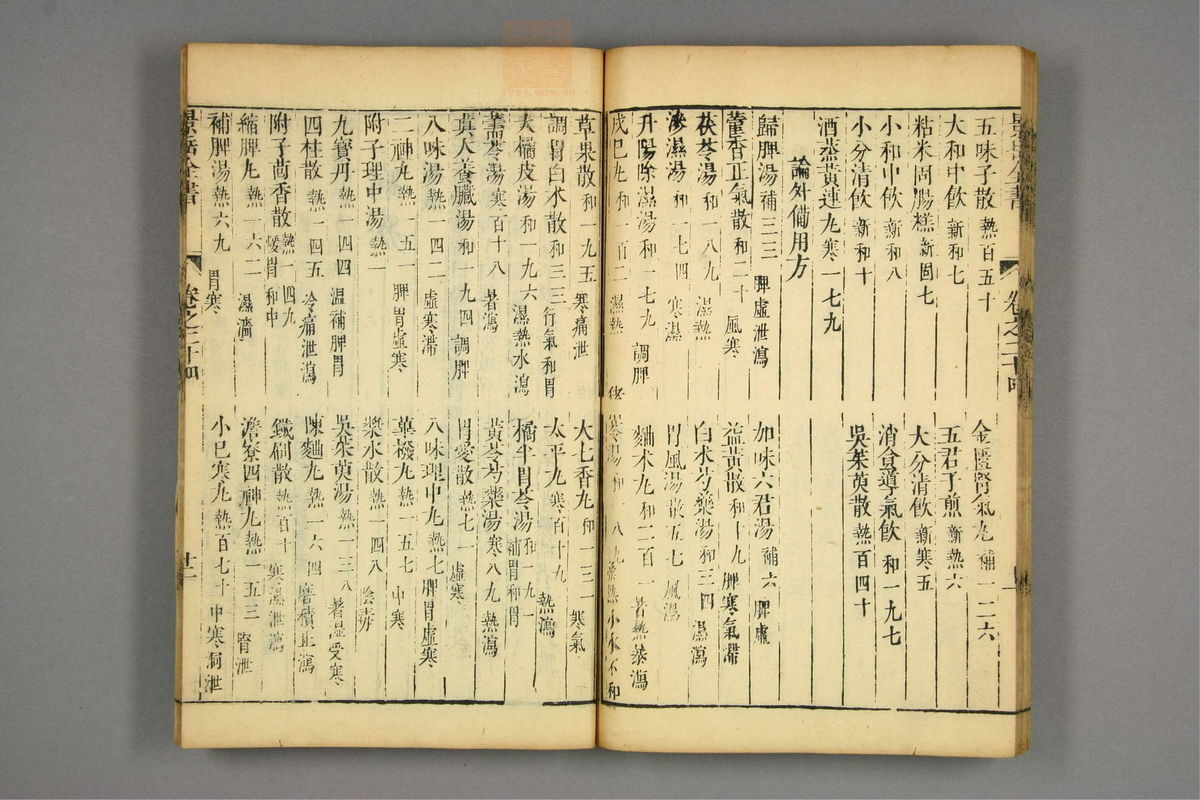 景岳全書 卷之二十四
五味子散 熱百五十 金匱腎氣丸 補一二六
大和中飲 新和七 五君子煎 新熱六
粘米固腸糕 新固七 大分清飲 新寒五
小和中飲 新和八 消食導氣飲 和一九七
小分清飲 新和十 吳茱萸散 熱百四十
酒蒸黃連丸 寒一七九
論外備用方
歸脾湯 補三三 脾虛泄瀉 加味六君湯 補六 脾虛
藿香正氣散 和二十 風寒 益黃散 和十九 脾寒氣滯
茯苓湯 和一八九 濕熱 白朮芍藥湯 和三四 濕瀉
滲濕湯 和一七四 寒濕 胃風湯 散五七 風濕
升陽除濕湯 和一七九 調脾 麯朮丸 和二百一 暑熱暴瀉
戊己丸 和一百二 濕熱 苓湯 小水不和
草果散 和一九五 寒痛泄 大七香丸 和一三一 寒氣
調胃白朮散 和三三 行氣和胃 太平丸 寒百十九 熱瀉
大橘皮湯 和一九六 濕熱水瀉 橘半胃苓湯 和一九一 補胃和胃
薷苓湯 寒百十八 暑瀉 黃芩芍藥湯 寒八九 熱瀉
真人養臟湯 和一九四 調脾 胃愛散 熱七一 虛寒
八味湯 熱四二 虛寒滯 八味理中丸 熱七 脾胃虛寒
二神丸 熱一五一 脾胃虛寒 蓽撥丸 熱一五七 中寒
附子理中湯 熱一 漿水散 熱一四八 陰毒
九寶丹 熱一四四 溫補脾胃 吳茱萸湯 熱一三八 暑湿受寒
四柱散 熱一四五 冷痛泄瀉 陳麯丸 熱一六四 磨積止瀉
附子茴香散 熱一四九 煖胃和中 鐵刷散 熱百十 寒濕泄瀉
縮脾丸 熱一六二 濕滯 澹寮四神丸 熱一五三 腎泄
補脾湯 熱六九 胃寒 小已寒丸 熱百七十 中寒洞泄
景岳全書 卷之二十四 廿二